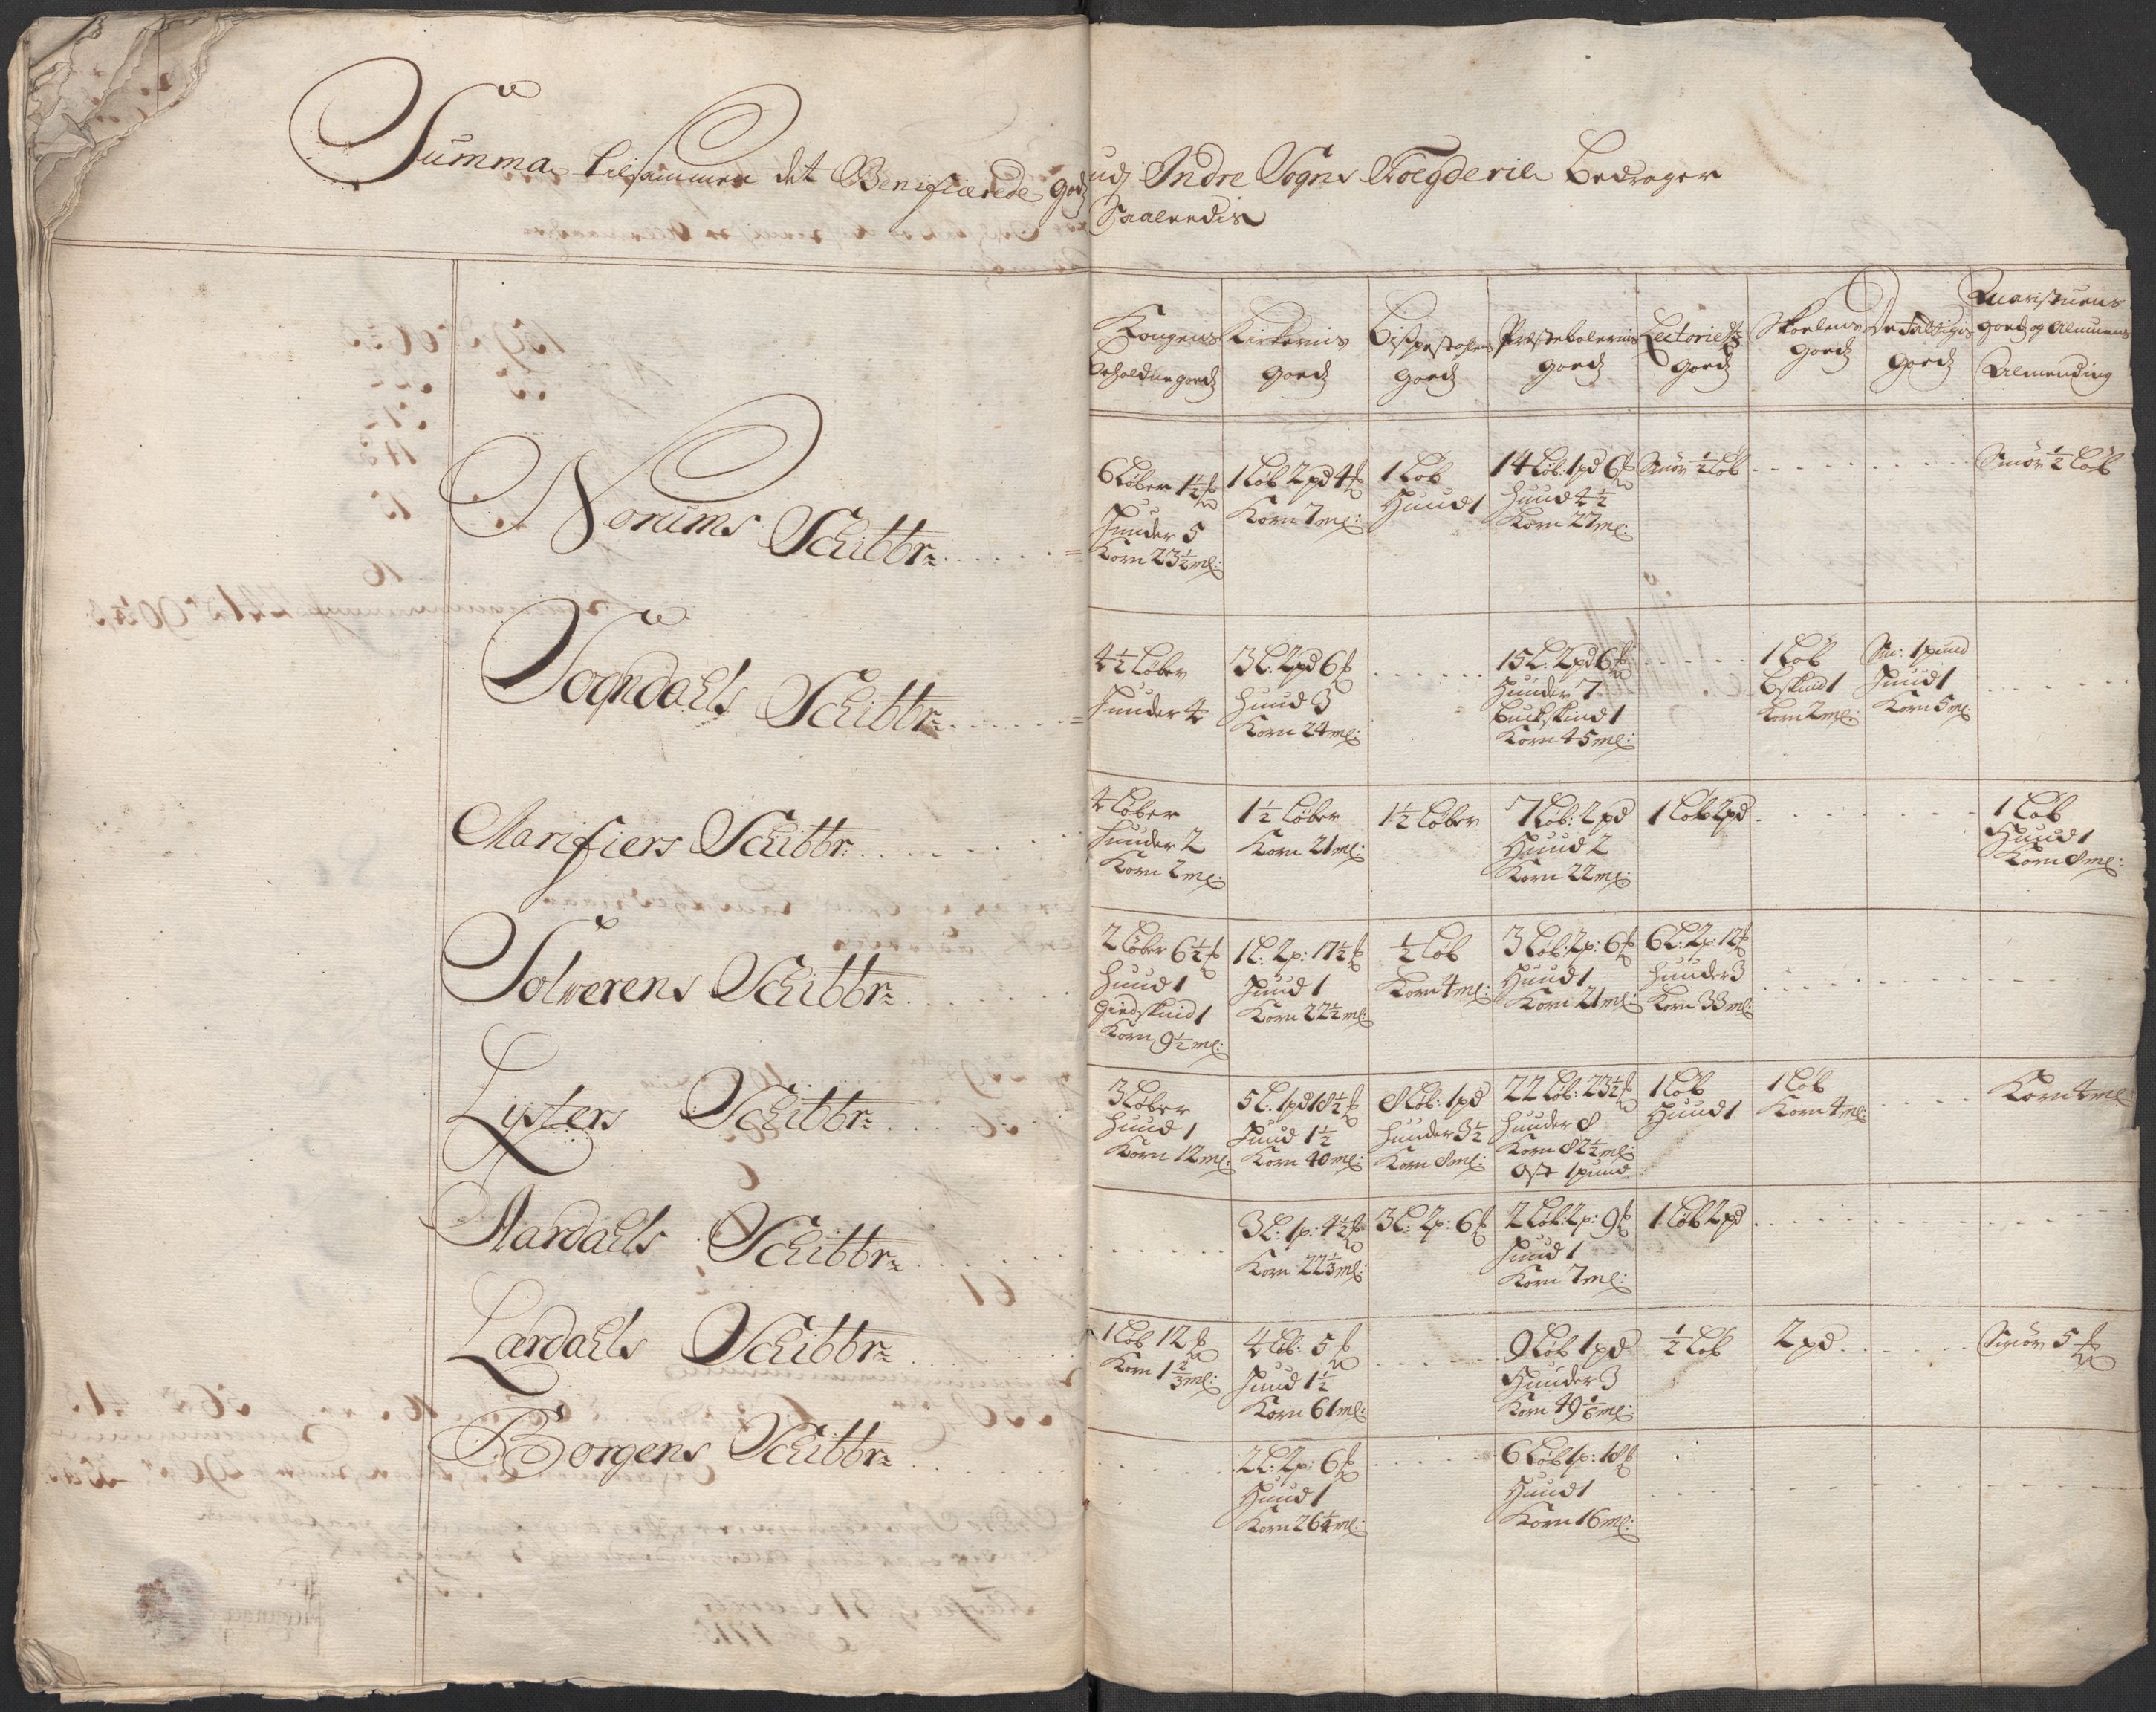 Summa tilsammen det Benificerede godz udj Indre Sogns Foegderie Bedrager
Saaleedis
Kongens beholdne goedz
Kirkernis goedz
Bispestolens goedz
Præstebolernis goedz
Lectoriets goedz
Skoelens goedz
De fattigis goedz
goedz og Almuens Almending
Norums Schibbr:
6 Løber 1½ ℔
Huuder 5
Korn 23½ mel:
1 Løb 2 pd 4 ℔
Korn 7 mel:
1 Løb
Huud 1
14 Løb: 1 pd 6 ℔
Huud 4½
Korn 27 mel:
Smör ½ Løb
Smör ½ Løb
Sogndahls Schibbr:
4½ Løber
Huuder 4
3 L: 2 pd 6 ℔
Huud 3
Korn 24 mel:
15 L: 2 pd 6 ℔
Huuder 7
Buckskind 1
Korn 45 mel:
1 Løb
Bskind 1
Korn 2 mel:
Sm: 1 pund
Huud 1
Korn 5 mel:
Marifiers Schibbr:
4 Løber
Huuder 2
Korn 2 mel:
1½ Løber
Korn 21 mel:
1½ Løber
7 Løb: 2 pd
Huud 2
Korn 22 mel:
1 Løb 2 pd
1 Løb
Huud 1
Korn 8 mel:
Solverens Schibbr:
2 Løber 6½ ℔
Huud 1
Giedskind 1
Korn 9½ mel:
1 L: 2 p: 17½ ℔
Huud 1
Korn 22½ mel:
½ Løb
Korn 4 mel:
3 Løb: 2 p: 6 ℔
Huud 1
Korn 21 mel:
6 L: 2 p: 12 ℔
Huuder 3
Korn 33 mel:
Lysters Schibbr:
3 Løber
Huud 1
Korn 12 mel:
5 L: 1 pd 18½ ℔
Huud 1½
Korn 40 mel:
8 Løb: 1 pd
Huuder 3½
Korn 8 mel:
22 Løb: 23½ ℔
Huuder 8
Korn 82½ mel:
Ost 1 pund
1 Løb
Huud 1
1 Løb
Korn 4 mel:
Korn 4 mel:
Aardahls Schibbr:
3 L: 1 p: 4½ ℔
Korn 22⅓ mel:
3 L: 2 p: 6 ℔
2 Løb: 2 p: 9 ℔
Huud 1
Korn 7 mel:
1 Løb 2 pd
Lardahls Schibbr:
1 Løb 12 ℔
Korn 1⅔ mel:
4 Løb: 5 ℔
Huud 1½
Korn 61 mel:
9 Løb 1 pd
Huuder 3
Korn 49⅙ mel:
½ Løb
2 pd
Smör 5 ℔
Borgens Schibbr:
2 L: 2 p: 6 ℔
Huud 1
Korn 26¼ mel:
6 Løb 1 p: 18 ℔
Huud 1
Korn 16 mel: